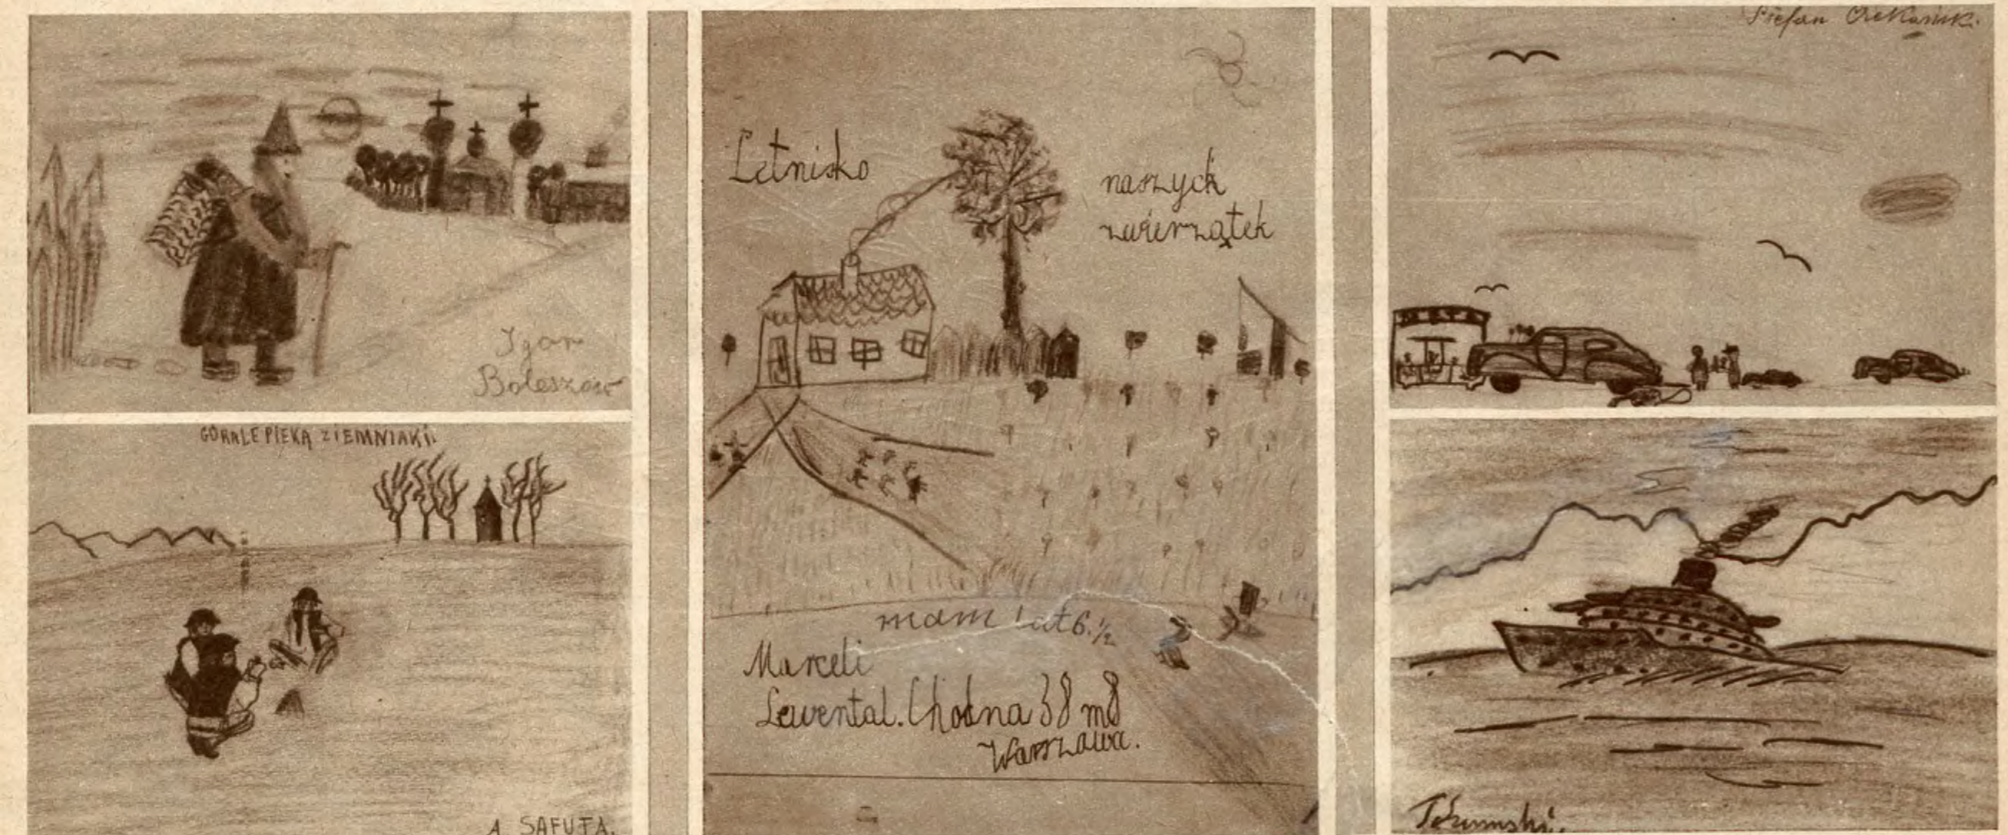 Igor
Boleszow
GÓRALE PIEKĄ ZIEMNIAKI.
A. SAFUTA.
Letnisko naszych
zwierzątek
mam lat 6. 1/2
Marceli
Lewental. Chodna 38 m 8
Warszawa.
Stefan
META